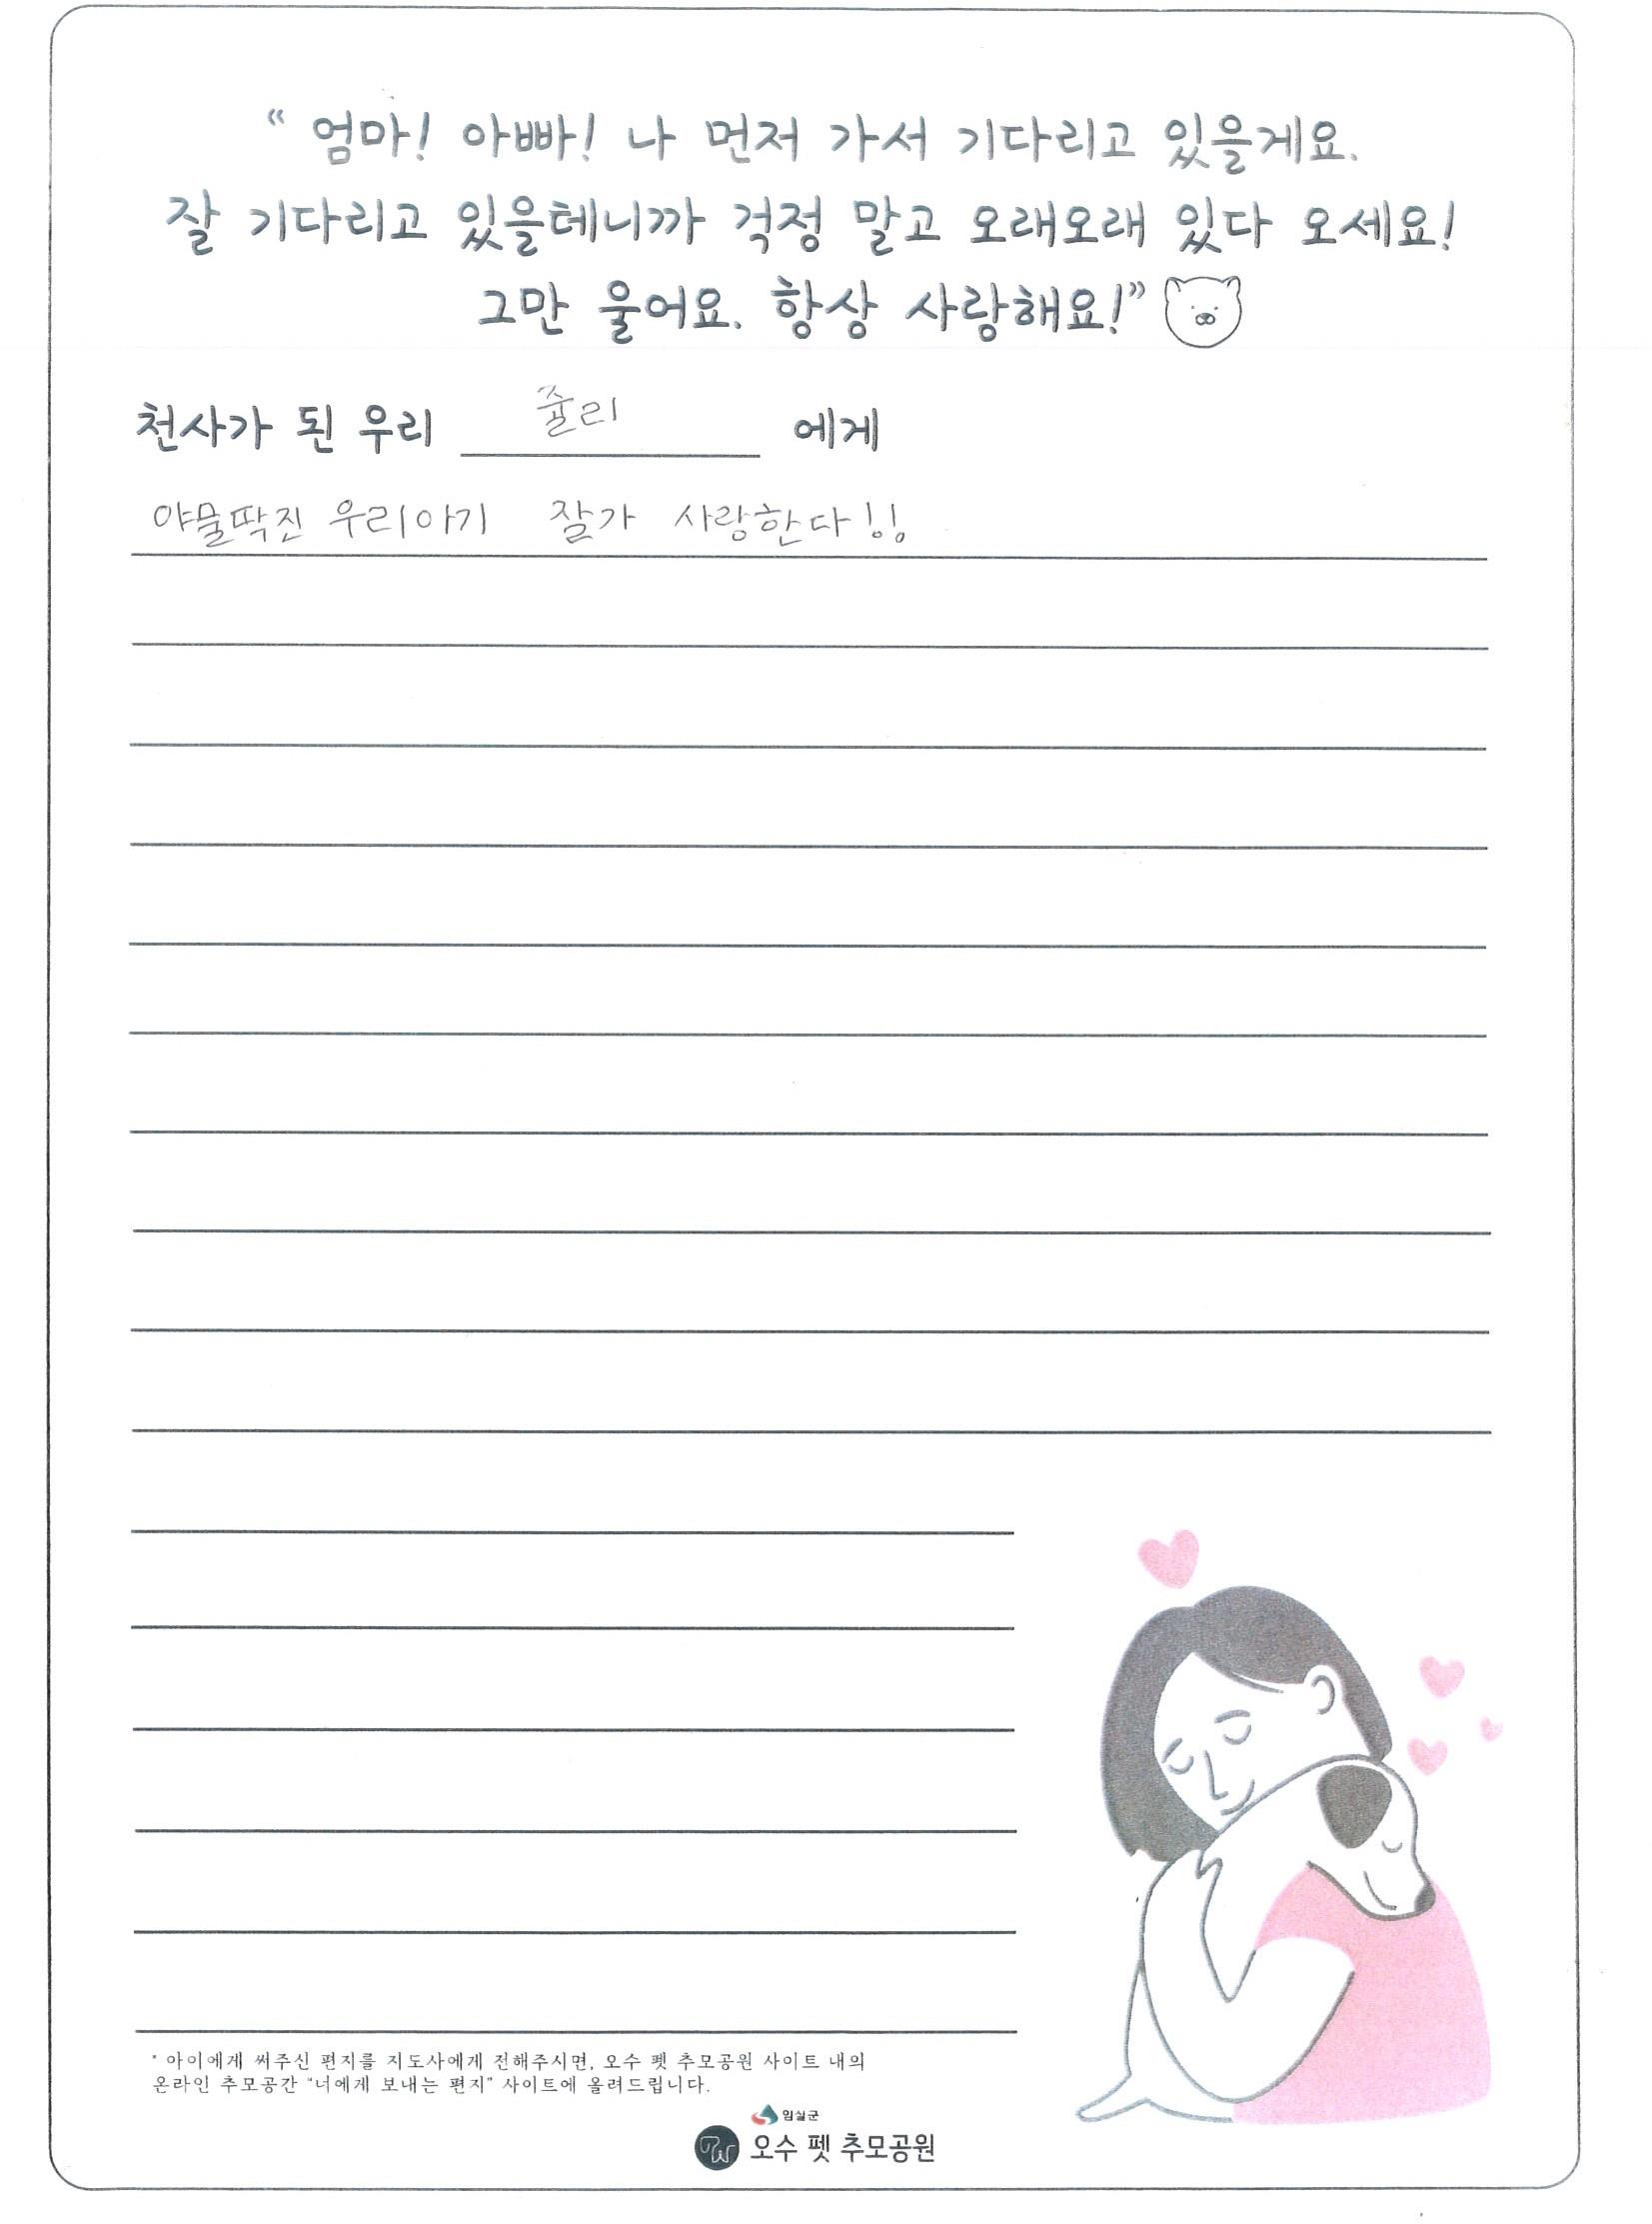 “ 엄마! 아빠! 나 먼저 가서 기다리고 있을게요.
잘 기다리고 있을테니까 걱정 말고 오래오래 있다 오세요!
그만 울어요. 항상 사랑해요!”
천사가 된 우리 쥴리 에게
야물딱진 우리아기 잘가 사랑한다!!
* 아이에게 써주신 편지를 지도사에게 전해주시면, 오수 펫 추모공원 사이트 내의
온라인 추모공간 "너에게 보내는 편지" 사이트에 올려드립니다.
임실군
오수 펫 추모공원